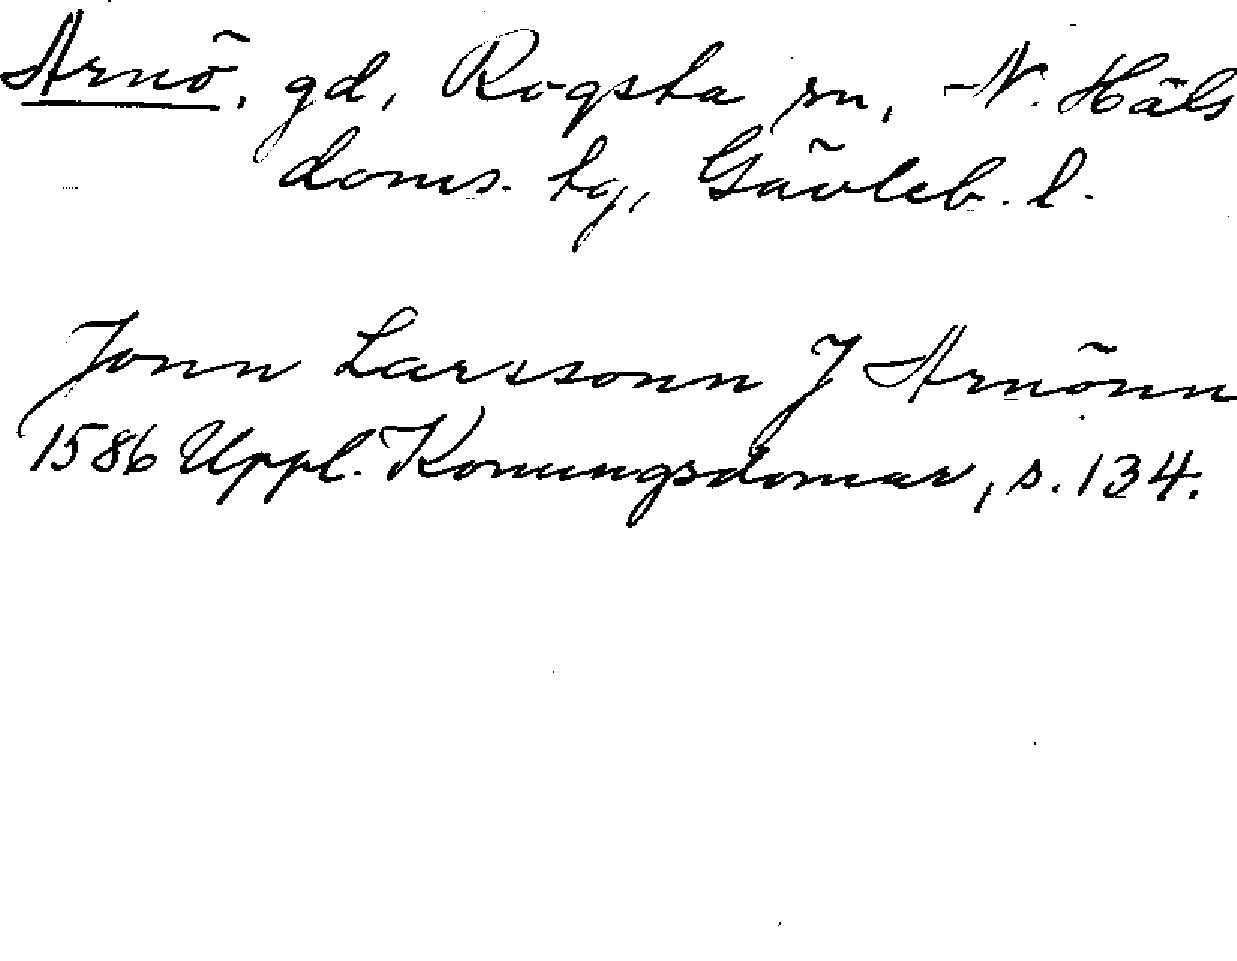 Arnö, gd, Rogsta sn, N. Häls
doms. tg, Gävleb. l.
Jonn Larssonn J Arnönn
1586 Uppl. Konungsdomar, s. 134.